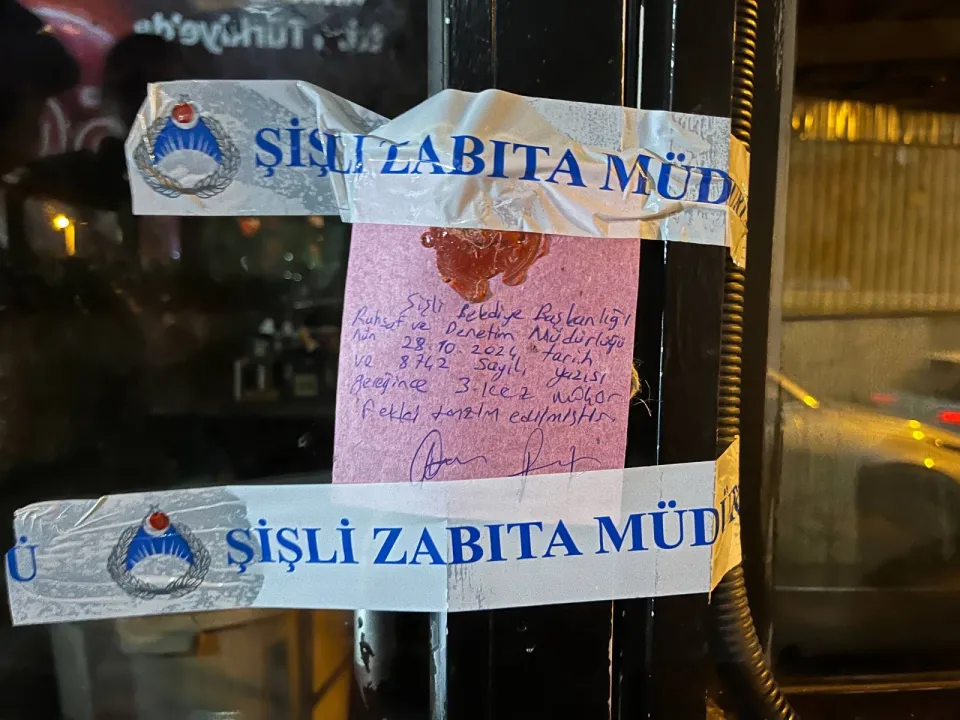 Türkiye'de
ŞİŞLİ ZABITA MÜD
Şişli Belediye Başkanlığı
Ruhsat ve Denetim Müdürlüğü
nün 28.10.2024 tarih
ve 8742 sayılı yazısı
gereğince 3.kez mühür
Fekki tanzim edilmiştir.
Ü ŞİŞLİ ZABITA MÜDÜR